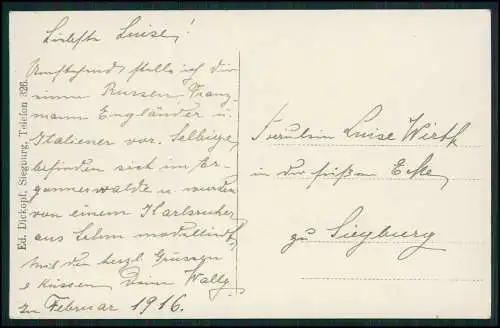 Liebste Luise!
Umstehend stelle ich dir
einen Russen, Franz-
mann Engländer u.
Italiener vor. Selbige
befinden sich im Ar-
gonnerwalde u. wurden
von einem Karlsruher
aus Lehm modelliert.
Mit den herzl. Grüssen
u Küssen Deine Wally
im Februar 1916.
Fräulein Luise Wirth
in der süßen Ecke
zu Siegburg
Ed. Dickopf, Siegburg, Telefon 326.